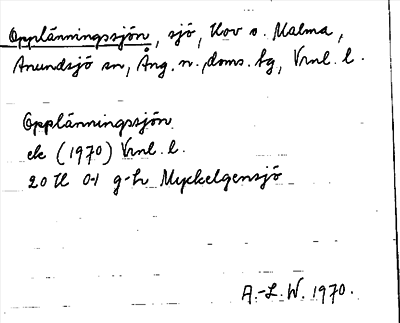 Opplänningssjön, sjö, Nov o. Malma,
Anundsjö sn, Ång. n. doms. fg, Vnl. l.
Opplänningssjön
ek (1970) Vnl. l.
20 H 0-1 g-h Myckelgensjö
A.-L. W. 1970.